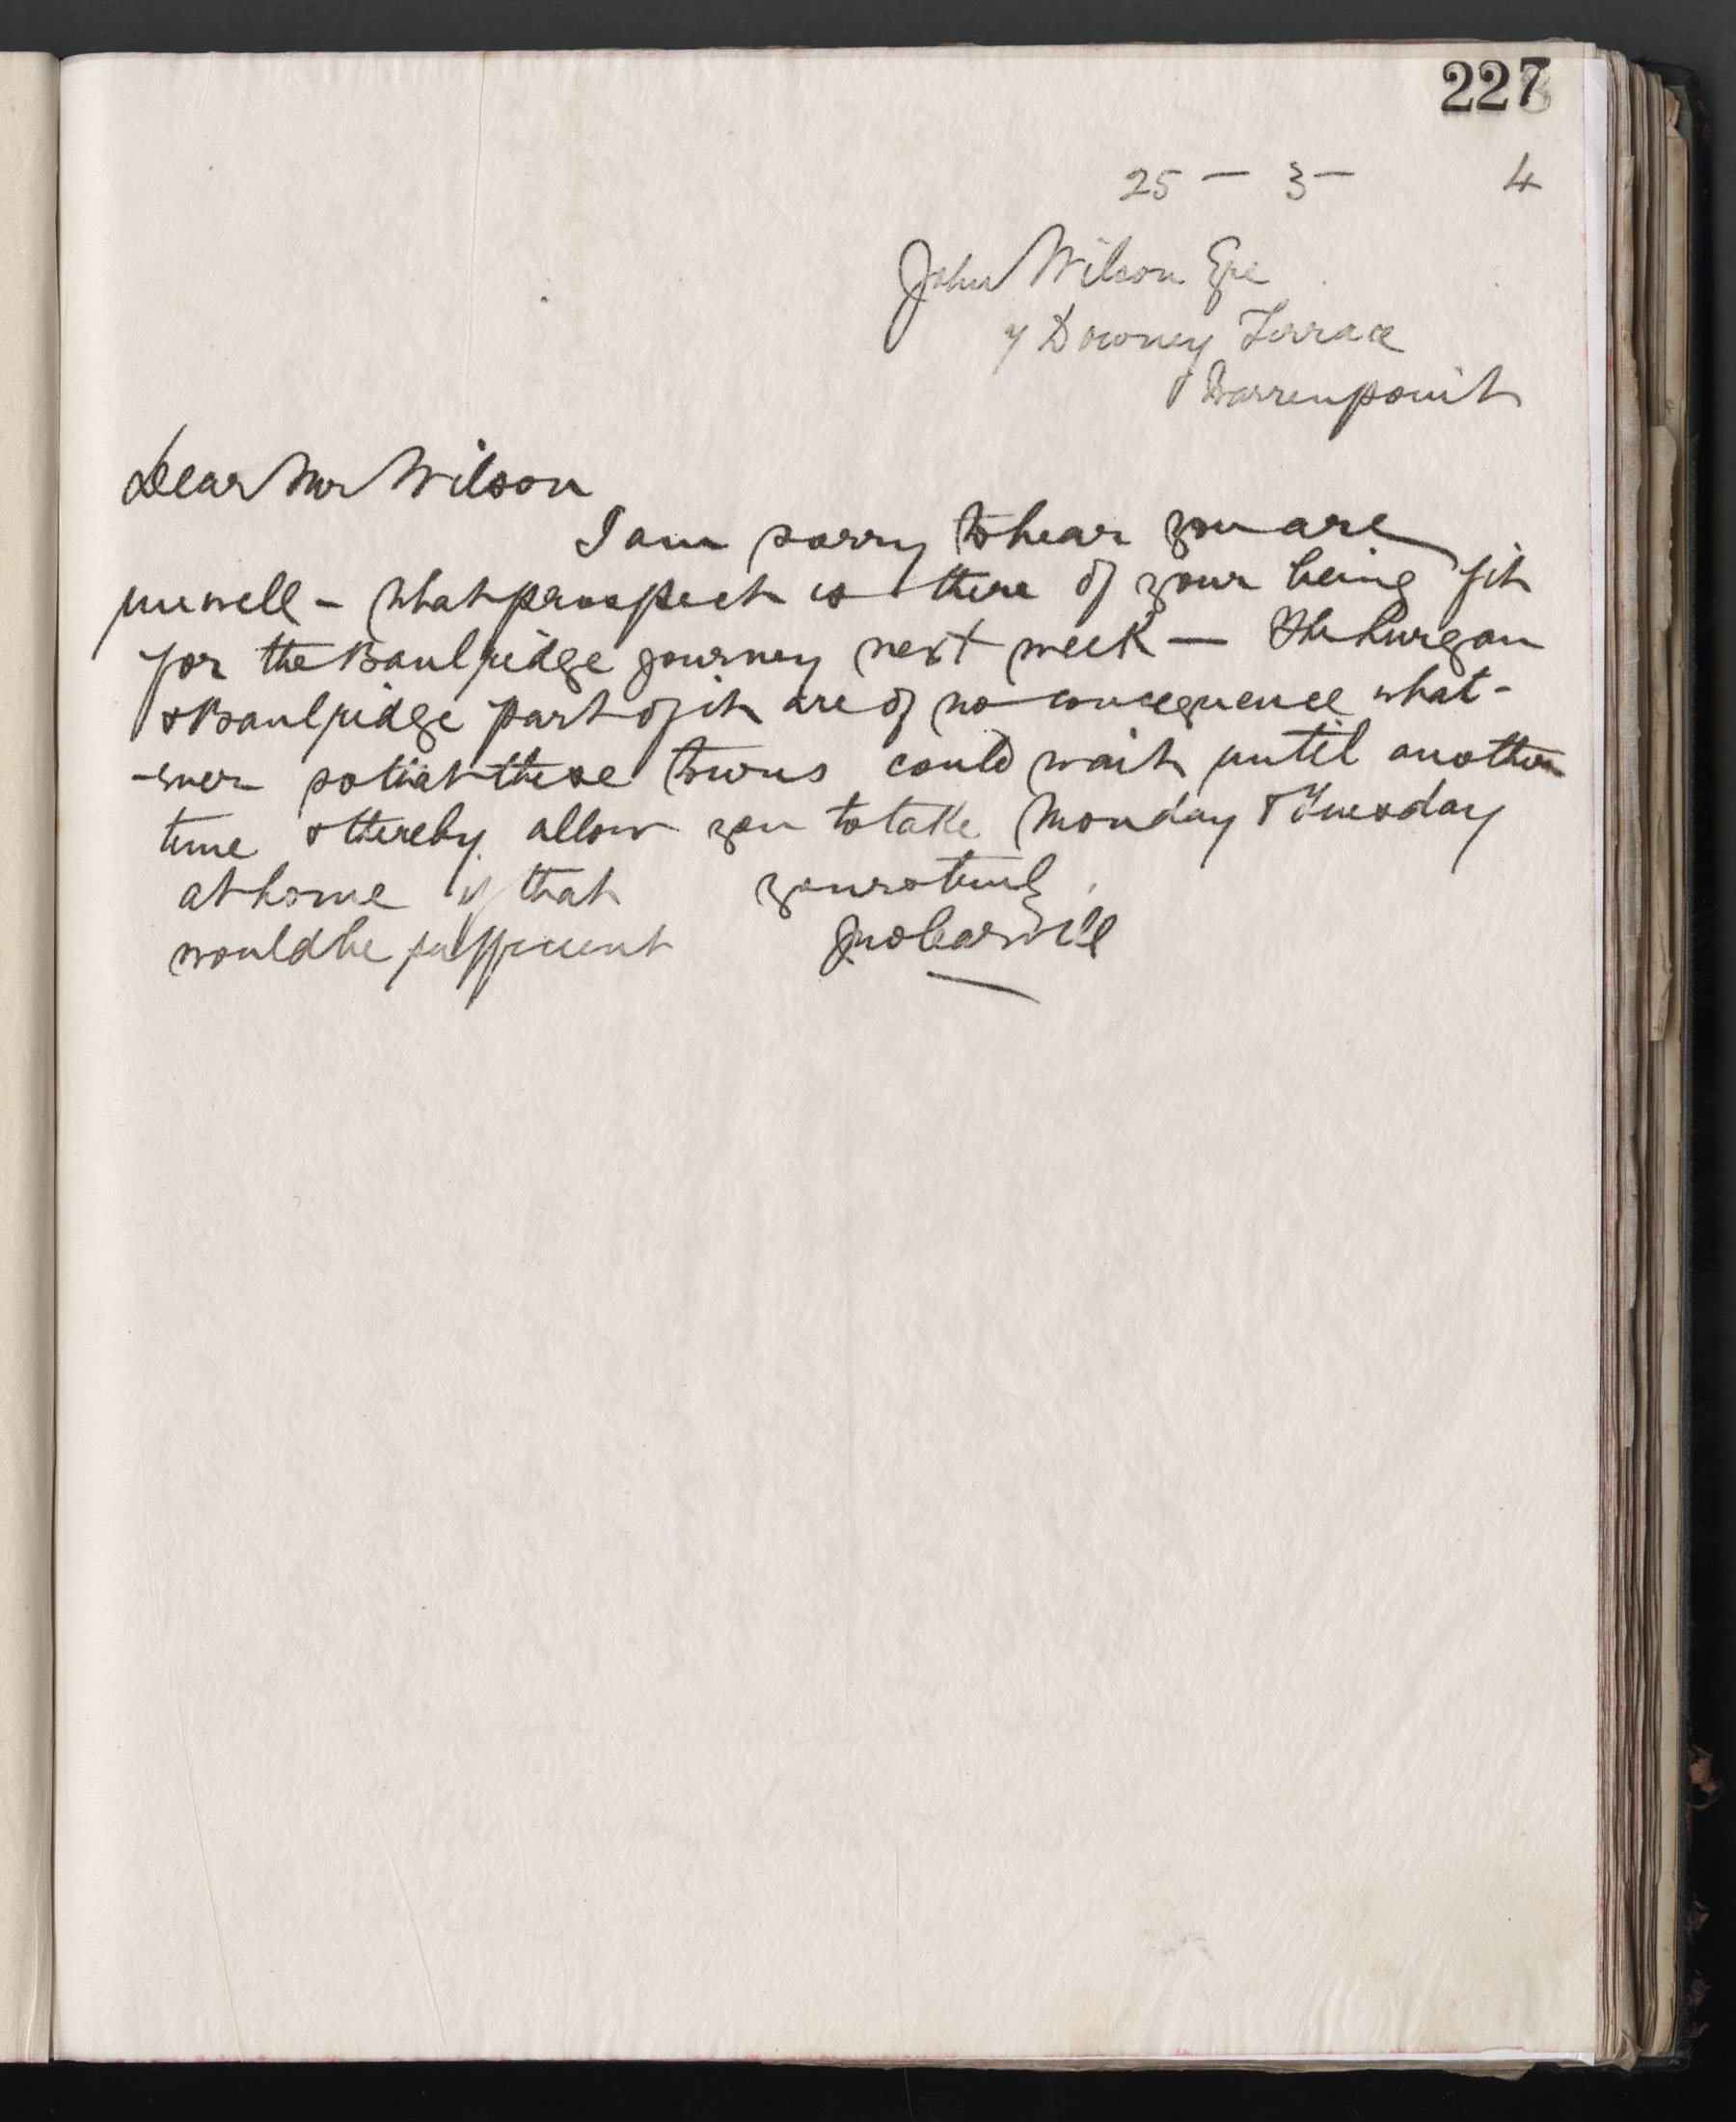 227
25 - 3 - 4
John Wilson Esqe
7 Downey Terrace
Warrenpoint
Dear Mr Wilson
I am sorry to hear you are
unwell - What prospect is there of your being fit
for the Banbridge journey next week - The Lurgan
& Banbridge part of it are of no consequence what-
-ever so that these towns could wait until another
time & thereby allow you to take Monday & Tuesday
at home if that yours truly
would be sufficient